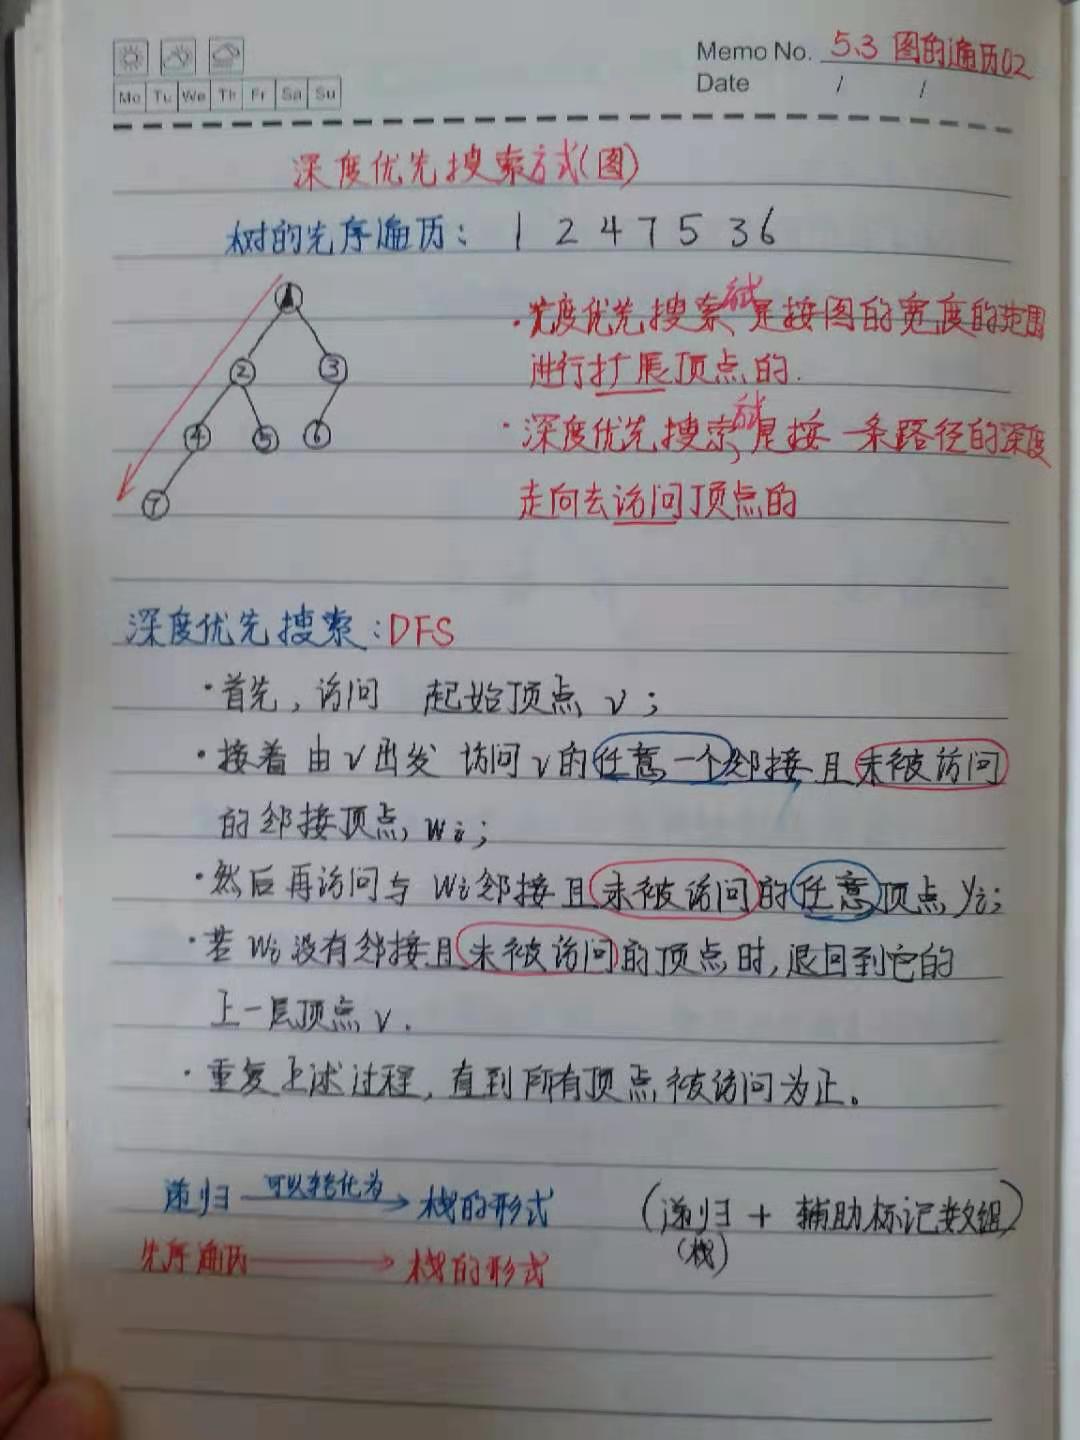 Memo No. 5.3 图的遍历02
Mo Tu We Th Fr Sa Su
Date / /
深度优先搜索方式(图)
树的先序遍历: 1 2 4 7 5 3 6
1
·宽度优先搜索,就是按图的宽度的范围
2 3
进行扩展顶点的.
4 5 6
·深度优先搜索,就是按一条路径的深度
7
走向去访问顶点的
深度优先搜索:DFS
·首先,访问 起始顶点 v;
·接着 由v出发 访问v的任意一个邻接且未被访问
的邻接顶点 wi;
·然后再访问与 wi邻接且未被访问的任意顶点 yi;
·若wi没有邻接且未被访问的顶点时,退回到它的
上一层顶点 v.
·重复上述过程,直到所有顶点被访问为止。
递归 可以转化为 栈的形式 (递归 + 辅助标记数组)
(栈)
先序遍历 栈的形式